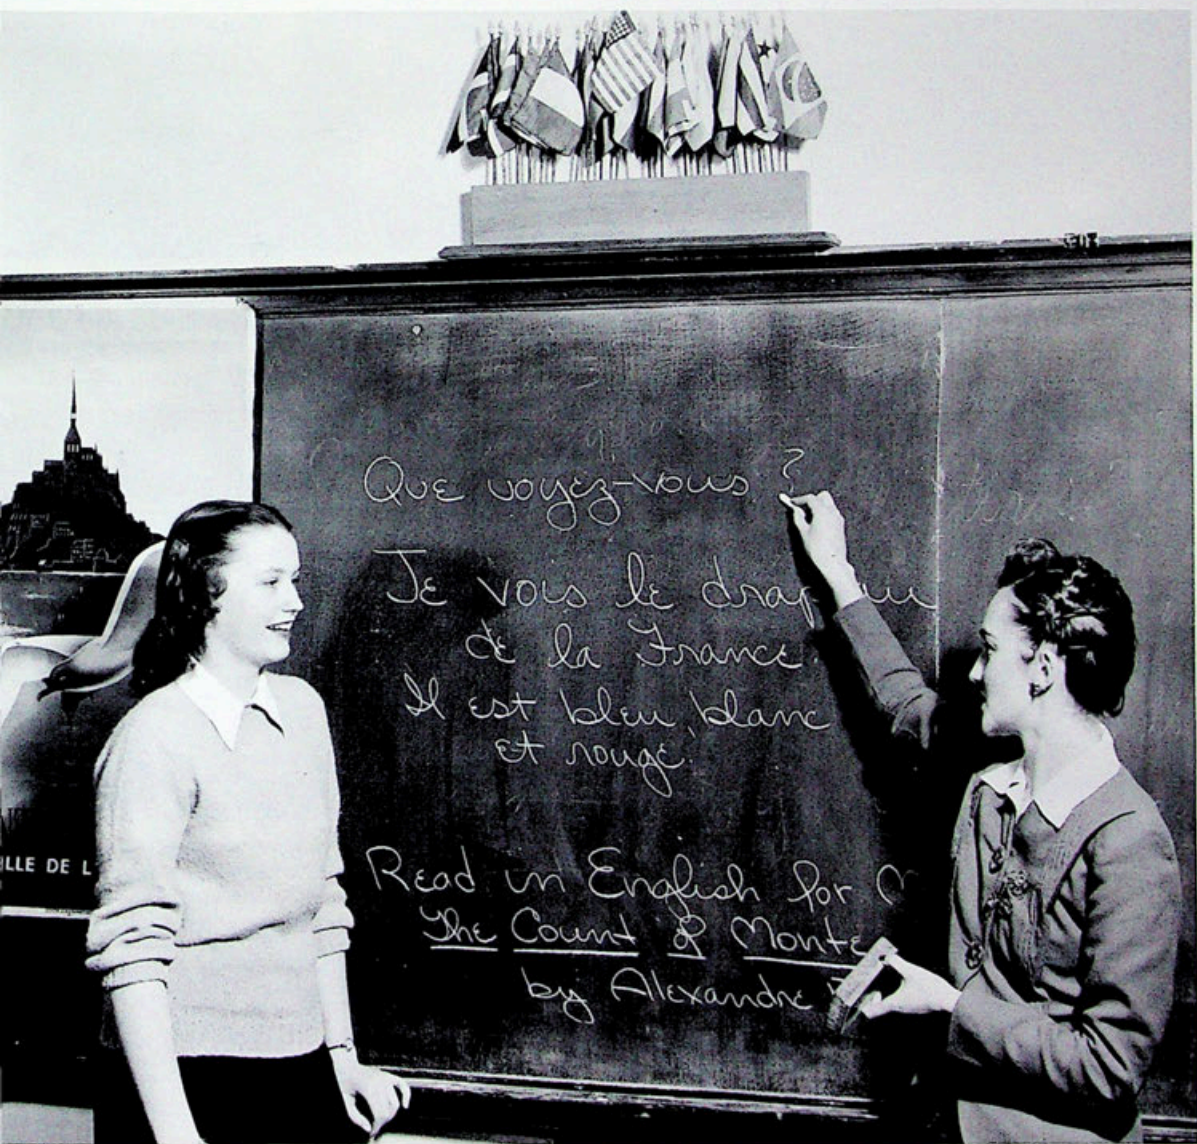 Que voyez-vous ?
Je vois le drap au
de la France.
Il est bleu, blanc
et rouge.
Read in English for M
The Count of Monte
by Alexandre
ILLE DE L